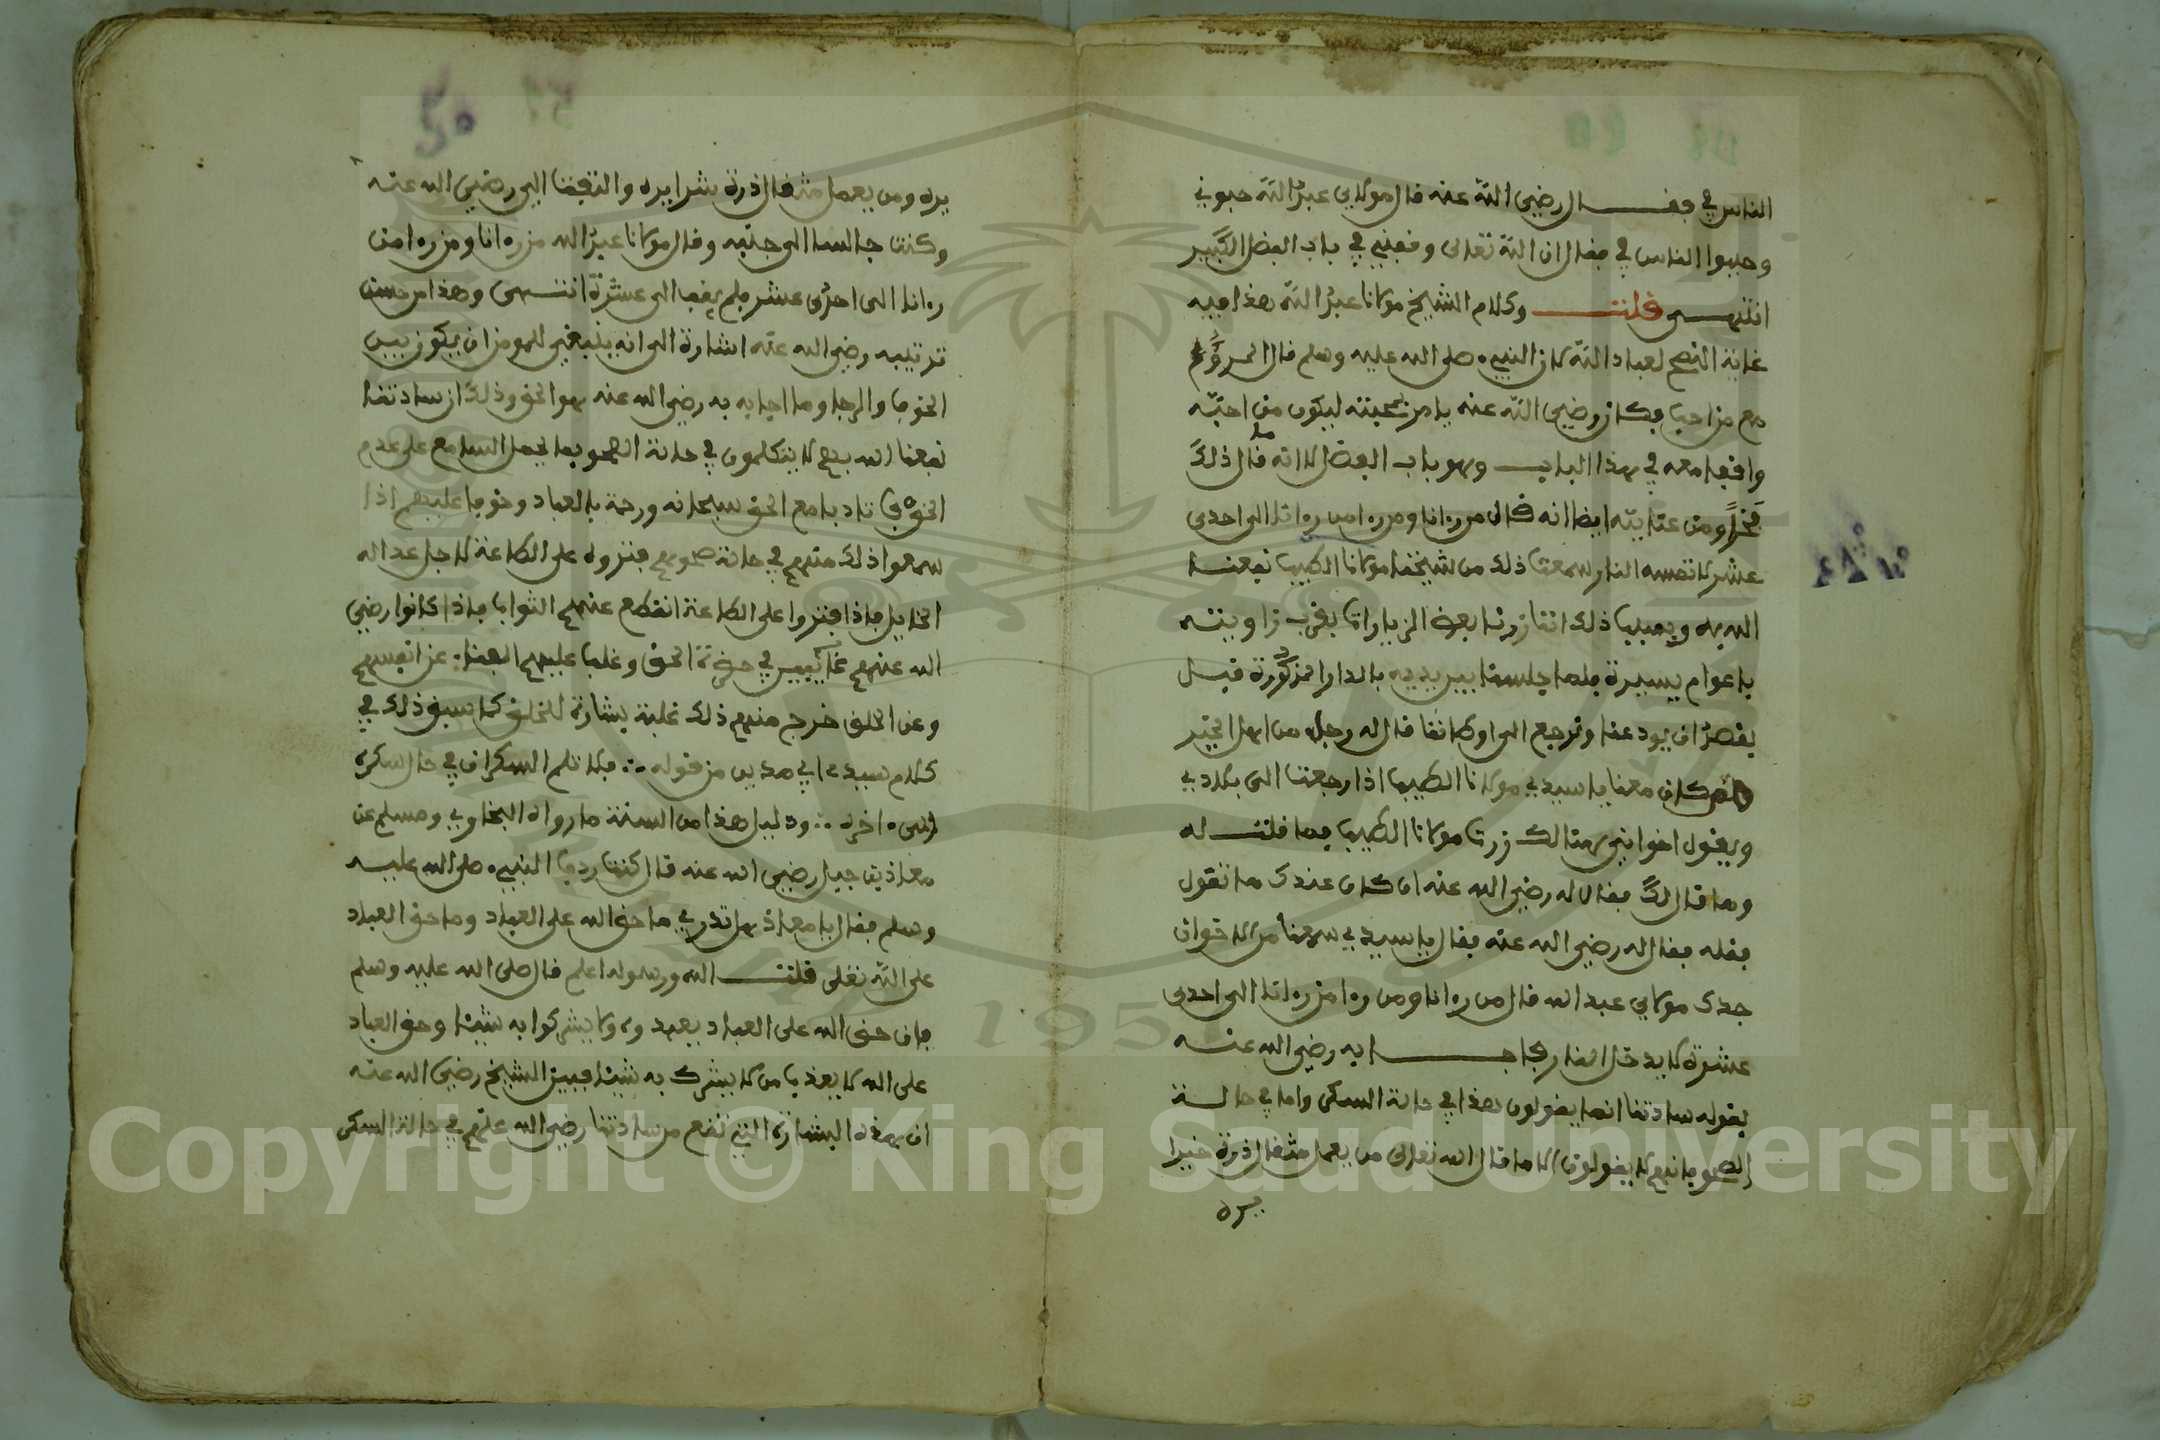 الناس في فقال رضي الله عنه قال مولاي عبد الله حبوني
وحببوا الناس في فقال ان الله تعالى وقفني في باب الفضل الكبير
انتهى قلت وكلام الشيخ مولانا عبد الله هذا فيه
غاية النصح لعباد الله لان النبيء صلى الله عليه وسلم قال المرؤ
مع من احب فكان رضي الله عنه يامر بمحبته ليكون من احبه
واقفا معه في هذا الباب وهو باب الفضل لانه ما قال ذلك
فخرا ومن عنايته ايضا انه قال من رءانا ومن رءا من رءانا الى احدى
عشر لا تمسه النار سمعت ذلك من شيخنا مولانا الطيب نفعنا
الله به وسبب ذلك اننا زرنا بعض الزيارات بقرب زاويته
باعوام يسيرة فلما جلسنا بين يديه بالدار المذكورة قبل
يقصد ان يودعنا ونرجع الى اوطاننا قال له رجل من اهل الخير
كان معنا يا سيدي مولانا الطيب اذا رجعت الى بلادي
ويقول اخواني هنالك زرت مولانا الطيب فما قلت له
وما قال لك فقال له رضي الله عنه ان كان عندك ما تقول
فقله فقال له رضي الله عنه فقال يا سيدي سمعنا من الاخوان
جدك مولاي عبد الله قال من رءانا ومن رءا من رءانا الى احدى
عشرة لا يدخل النار فاجابه رضي الله عنه
بقوله سادتنا انما يقولون هذا في حالة السكر واما في حالة
الصحو فانهم لا يقولون الا ما قال الله تعالى من يعمل مثقال ذرة خيرا
يره
50
يره ومن يعمل مثقال ذرة شرا يره والتفت الي رضي الله عنه
وكنت جالسا الى جنبه وقال مولانا عبد الله من رءانا ومن رءا من
رءانا الى احدى عشر فلم يقف الى عشرة انتهى وهذا من حسن
ترتيبه رضي الله عنه اشارة الى انه ينبغي للمومن ان يكون بين
الخوف والرجا وما اجابه به رضي الله عنه هو الحق وذلك ان سادتنا
نفعنا الله بهم لا يتكلمون في حالة الصحو بما يحمل السامع على عدم
الخوف تادبا مع الحق سبحانه ورحمة بالعباد وخوفا عليهم اذا
سمعوا ذلك منهم في حالة صحوهم فتروا على الطاعة لاجل عد اله
الخايل فاذا فتروا على الطاعة انقطع عنهم الثواب فاذا كانوا رضي
الله عنهم غائبين في حضرة الحق وغلب عليهم الفنا عن انفسهم
وعن الخلق خرج منهم ذلك غلبة بشارة للخلق كما سبق ذلك في
كلام سيدي ابي مدين من قوله ؞ فلا تلم السكران في حال سكره
الى ءاخره ؞ ودليل هذا من السنة ما رواه البخاري ومسلم عن
معاذ بن جبل رضي الله عنه قال كنت ردف النبيء صلى الله عليه
وسلم فقال يا معاذ هل تدري ما حق الله على العباد وما حق العباد
على الله تعلى قلت الله ورسوله اعلم قال صلى الله عليه وسلم
فان حق الله على العباد يعبدوه ولا يشركوا به شيئا وحق العباد
على الله لا يعذب من لا يشرك به شيئا فبين الشيخ رضي الله عنه
ان هذه البشارة التي تقع من سادتنا رضي الله عنهم في حالة السكر
1957
Copyright © King Saud University